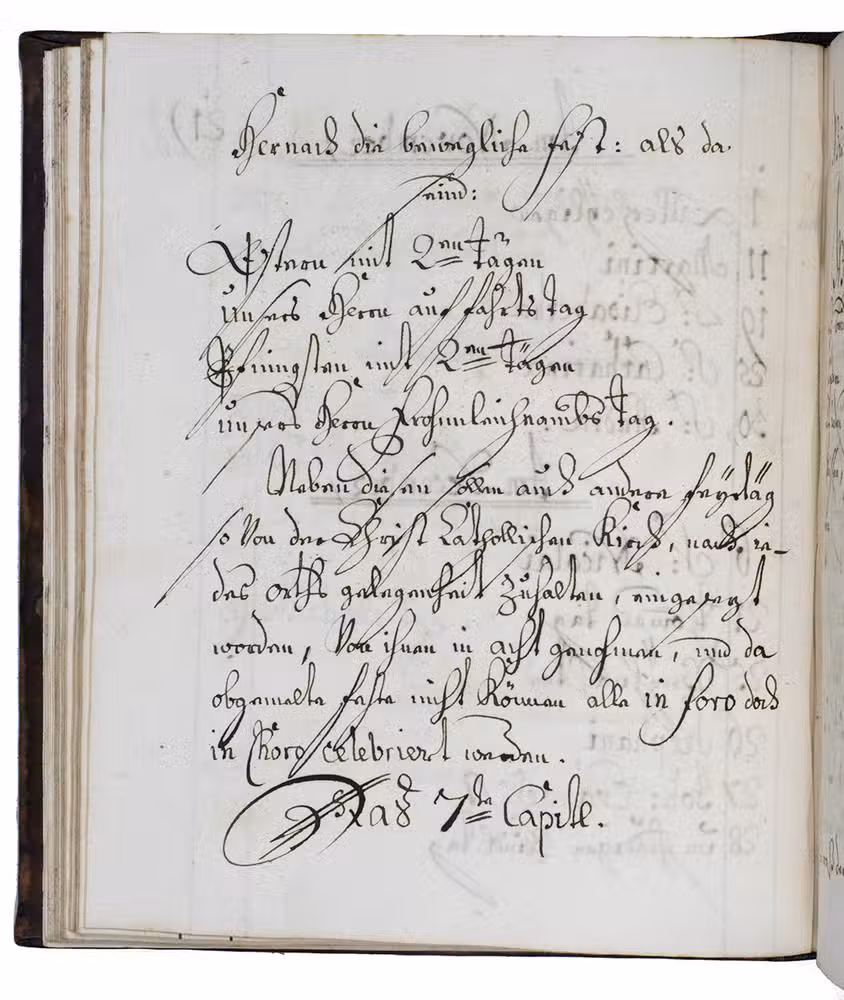 Hernach die bewegliche fest: als da
seind:
Ostern mit 2en Tägen
Unsers Herrn auffahrts tag
Pfingsten mit 2en Tägen
unsers Herrn Frohnleichnambs Tag.
Neben diesen sollen auch andere feÿrtäg
so Von der Christ Catholischen Kirch, nach ie-
des orths gelegenheit Zuhalten, eingesezt
worden, Von ihnen in acht genohmen, und da
obgemelte feste nicht Können alle in foro doch
in Choro celebriert werden.
Das 7te Capitl.